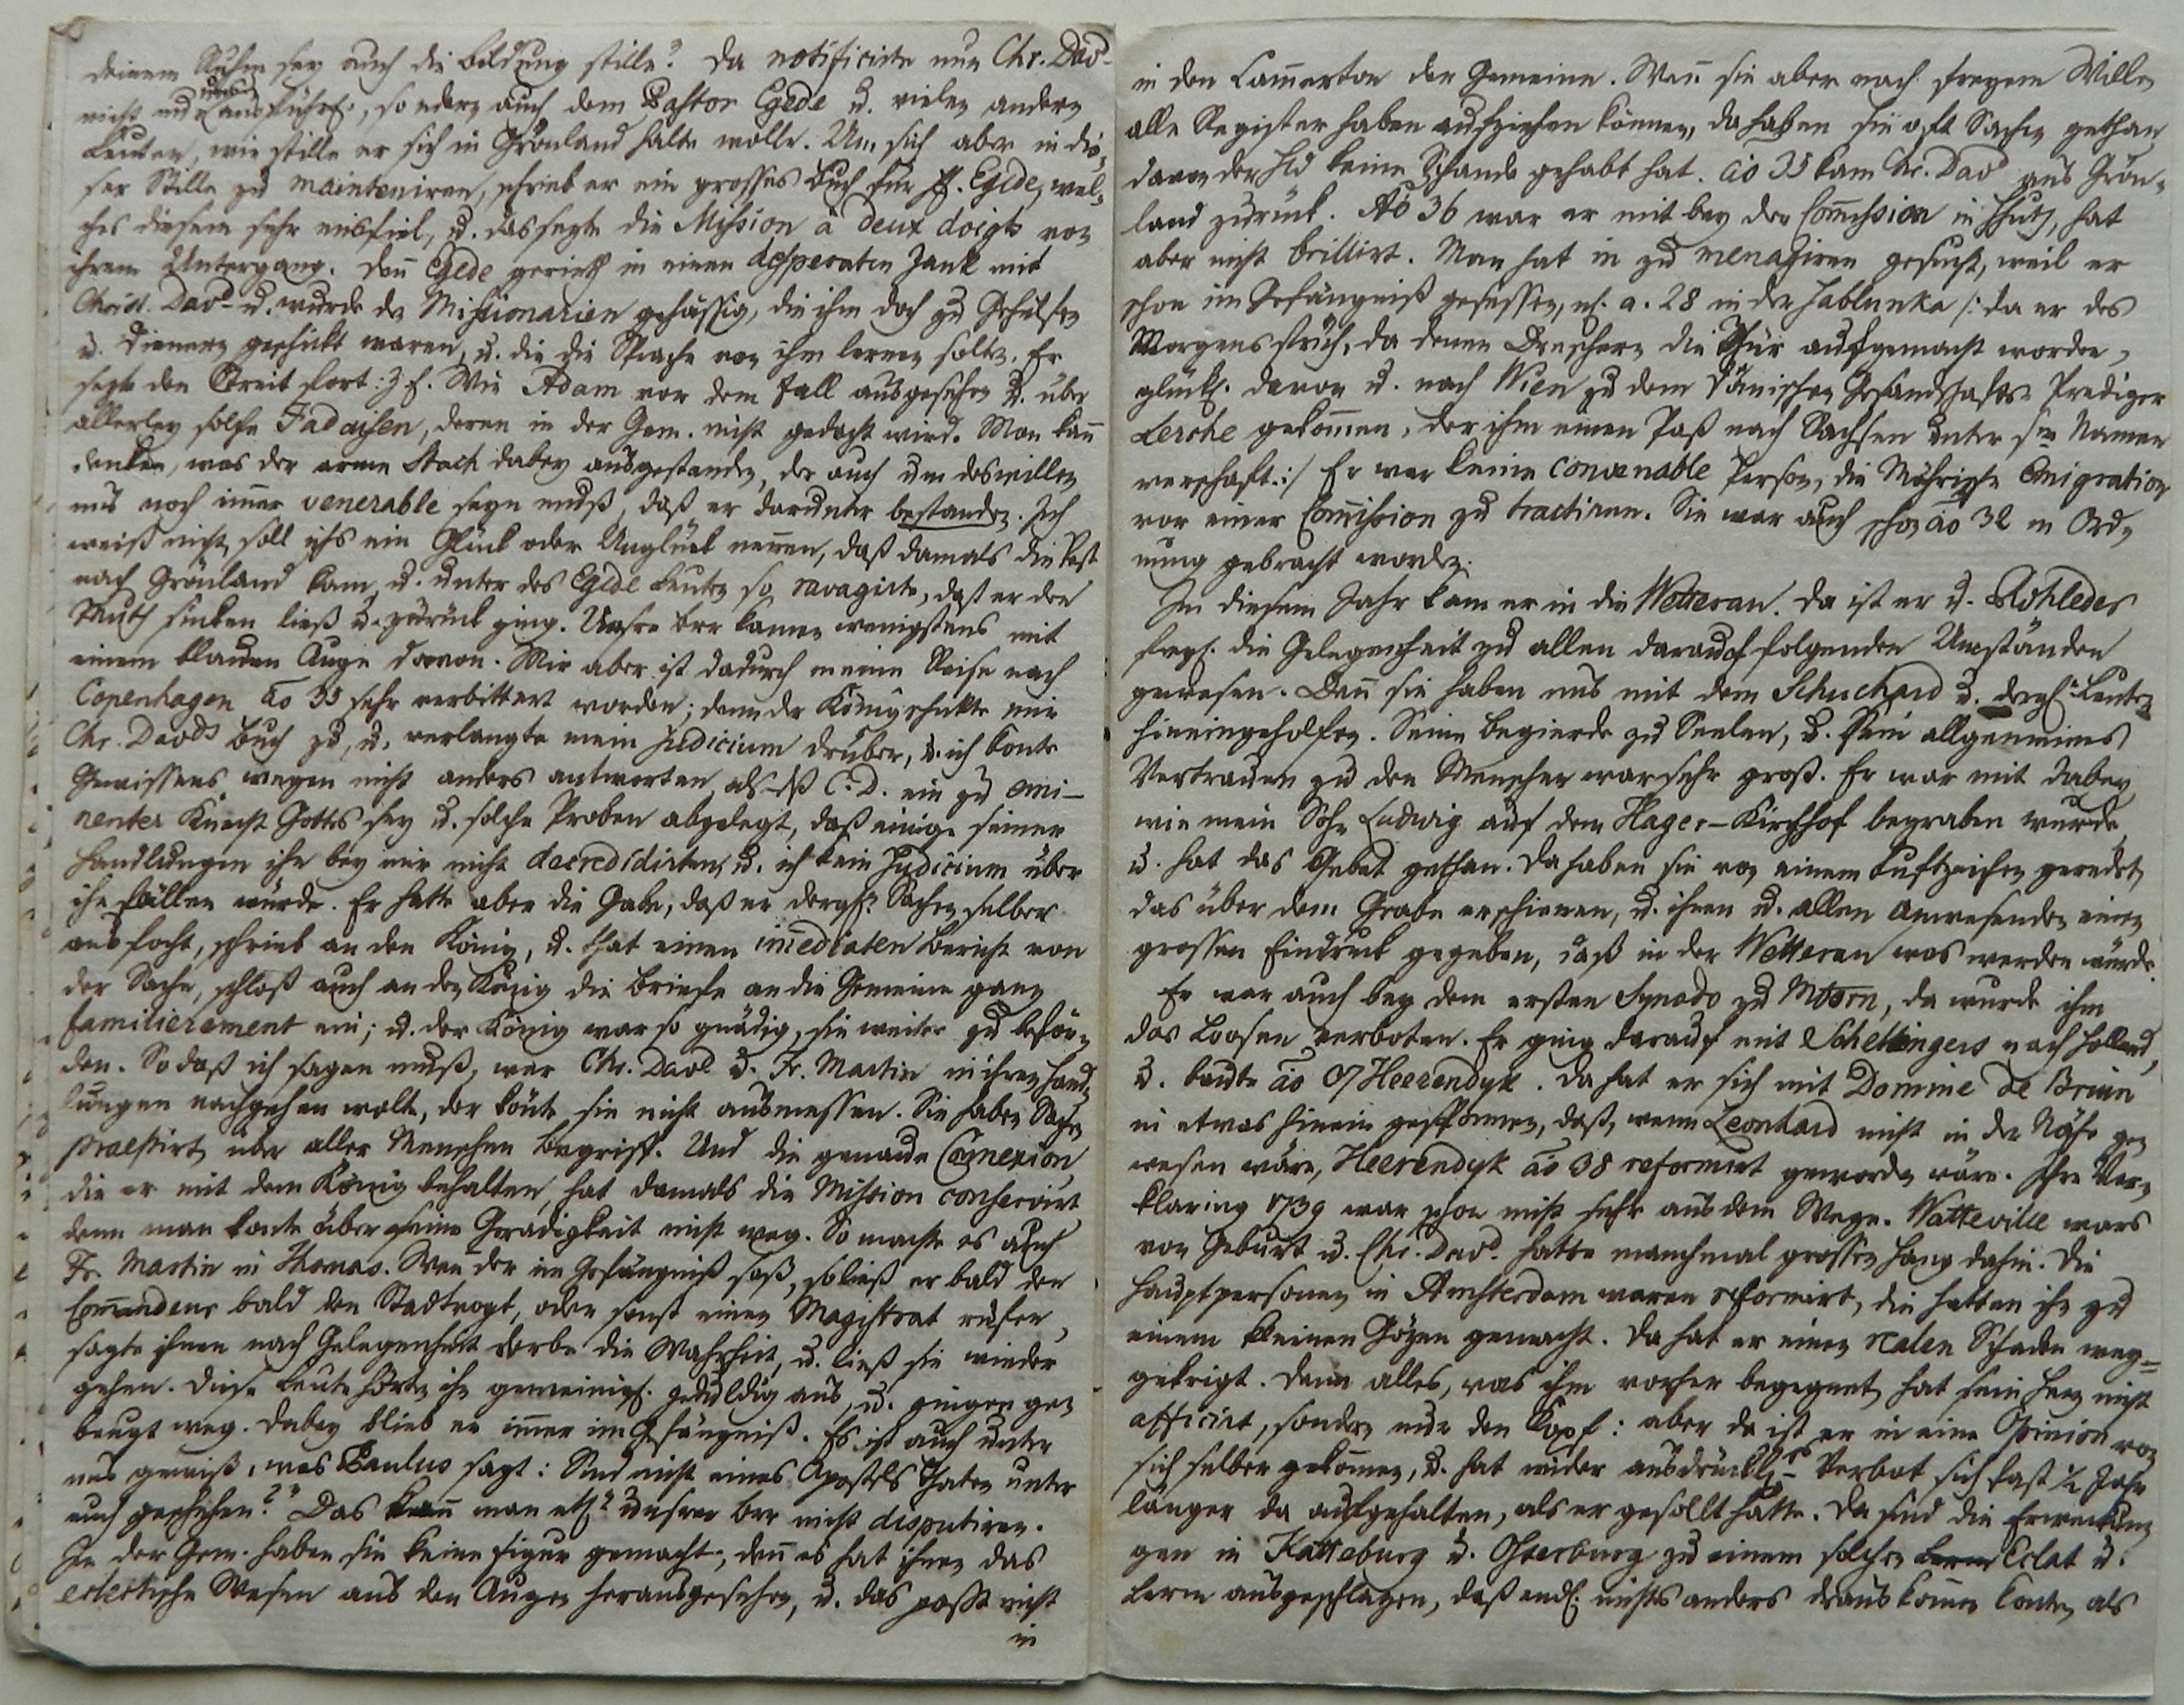 deinem Ruhm sey auch die Bildung stille? Da notificirte nun Chr. Dav-
nicht nur ausführl., sondern auch dem Pastor Egede u. vielen andern
Leuten, wie stille er sich in Grönland halten wolle. Um sich aber in die-
ser Stille zu mainteniren, schrieb er ein grosses Buch für H. Egede, wel-
ches diesem sehr misfiel, u. das sezte die Mission à deux doigts von
ihrem Untergang. Denn Egede gerieth in einen desperaten Zank mit
Christ. Davd u. wurde den Missionarien gehässig, die ihm doch zu Gehülfen
u. Dienern geschickt waren, u. die die Sprache von ihm lernen solten. Er
sezte den Streit fort: z. E. Wie Adam vor dem Fall ausgesehen u. über
allerley solche Fadaisen, deren in der Gem. nicht gedacht wird. Man kan̄
denken, was der arme Stach dabey ausgestanden, der auch um deswillen
uns noch im̄er venerable seyn muß, daß er darunter bestanden. Ich
weiß nicht, soll ichs ein Glück oder Unglück nen̄en, daß damals die Pest
nach Grönland kam, u. unter des Egede Leuten so ravagirte, daß er den
Muth sinken ließ u. zurück ging. Unsre Brr kamen wenigstens mit
einem blauen Auge davon. Mir aber ist dadurch meine Reise nach
Copenhagen ao 35 sehr verbittert worden; denn der König schickte mir
Chr. Davds Buch zu, u. verlangte mein Judicium drüber, u. ich konte
Gewissens wegen nicht anders antworten, als dß C. D. ein zu emi-
nenter Knecht Gottes sey u. solche Proben abgelegt, daß einige seiner
Handlungen ihn bey mir nicht decredidirten, u. ich kein Judicium über
ihn fällen würde. Er hatte aber die Gabe, daß er dergl. Sachen selber
aus focht, schrieb an den König, u. that einen im̄ediaten Bericht von
der Sache, schloß auch an den König die Briefe an die Gemeine ganz
familierement ein; u. der König war so gnädig, sie weiter zu beför-
dern. So daß ich sagen muß, wer Chr. Davd u. Fr. Martin in ihren Hand-
lungen nachgehen wolte, der könte sie nicht ausmessen. Sie haben Sachen
praestirt, über aller Menschen Begriff. Und die genaue Con̄exion
die er mit dem König behalten, hat damals die Mission conservirt
denn man konte über seine Geradigkeit nicht weg. So machte es auch
Fr. Martin in Thomas. Wenn der im Gefängniß saß, so ließ er bald den
Com̄endeur bald den Stadtvogt, oder sonst einen Magistrat rufen,
sagte ihnen nach Gelegenheit derbe die Wahrheit, u. ließ sie wieder
gehen. Diese Leute hörten ihn gemeinigl. geduldig aus, u. gingen ge-
beugt weg. Dabey blieb er im̄er im Gefängniß. Es ist auch unter
uns gewiß, was Paulus sagt: Sind nicht eines Apostels Thaten unter
euch geschehen?" Das kan̄ man etl. unsrer Brr nicht disputiren.
In der Gem. haben sie keine Figur gemacht, denn es hat ihnen das
eclectische Wesen aus den Augen herausgesehen, u. das paßt nicht
in
in den Cam̄erton der Gemeine. Wen̄ sie aber nach freyem Willen
alle Register haben aufziehen können, da haben sie oft Sachen gethan
davon der Hld keine Schande gehabt hat. ao 35 kam Chr. Davd aus Grön-
land zurück. Ao 36 war er mit bey der Com̄ission in Hhuth, hat
aber nicht brillirt. Man hat ihn zu menagiren gesucht, weil er
schon im Gefängniß gesessen, nl. a. 28 in der Jablunka /: da er des
Morgens früh, da denen Dreschern die Thür aufgemacht worden,
glückl. davon u. nach Wien zu dem Dänischen Gesandschafts Prediger
Lerche gekom̄en, der ihm einen Paß nach Sachsen unter sm Namen
verschaft :/ Er war keine convenable Person, die Mährische Emigration
vor einer Com̄ission zu tractiren. Sie war auch schon ao 32 in Ord-
nung gebracht worden.
In diesem Jahr kam er in die Wetterau. Da ist er u. Rohleder
frgl. die Gelegenheit zu allen darauf folgenden Umständen
gewesen. Denn sie haben uns mit dem Schuchard u. dergl. Leuten
hineingeholfen. Seine Begierde zu Seelen, u. sein allgemeines
Vertrauen zu den Menschen war sehr groß. Er war mit dabey
wie mein Sohn Ludwig auf dem Hager-Kirchhof begraben wurde,
u. hat das Gebet gethan. Da haben sie von einem Luftzeichen geredet,
das über dem Grabe erschienen, u. ihnen u. allen Anwesenden einen
grossen Eindruck gegeben, daß in der Wetterau was werden würde.
Er war auch bey dem ersten Synodo zu Mborn, da wurde ihm
das Loosen verboten. Er ging darauf mit Schellingers nach Holland,
u. baute ao 37 Heerendyk. Da hat er sich mit Domine de Bruin
in etwas hinein gesponnen, daß, wenn Leonhard nicht in der Nähe ge-
wesen wäre, Heerendyk ao 38 reformirt geworden wäre. Ihre Ver-
klaring 1739 war schon nicht sehr aus dem Wege. Watteville wars
von Geburt u. Chr. Davd. hatte manchmal grossen Hang dahin. Die
Hauptpersonen in Amsterdam waren reformirt, die hatten ihn zu
einem kleinen Gözen gemacht. Da hat er einen realen Schaden weg-
gekrigt. Denn alles, was ihm vorher begegnet, hat sein Herz nicht
afficirt, sondern nur den Kopf: aber da ist er in eine Opinion von
sich selber gekom̄en, u. hat wider ausdrückl. Verbot sich fast 1/2 Jahr
länger da aufgehalten, als er gesollt hätte. Da sind die Erweckun-
gen in Katteburg u. Osterburg zu einem solchen Eclat u.
Lerm ausgeschlagen, daß endl. nichts anders draus kom̄en konte, als